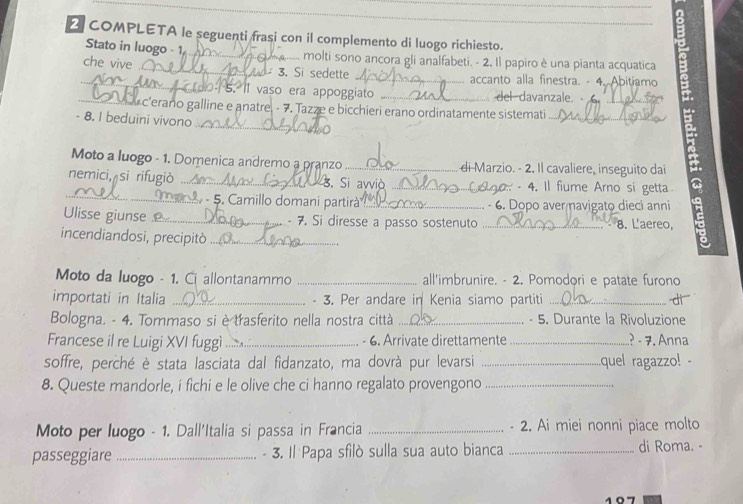 2 COMPLETA le seguenti frasi con il complemento di luogo richiesto.
Stato in luogo - 1. molti sono ancora gli analfabeti. - 2. Il papiro è una pianta acquatica
che vive - 3. Si sedette vicino accanto alla finestra. - 4. Abitiamo
5. Il vaso era appoggiato sul del davanzale. - 6. Nel
c'erano galline e anatre. - 7. Tazze e bicchieri erano ordinatamente sistemati
- 8. I beduini vivono nel deserto
Moto a luogo - 1. Domenica andremo a pranzo da di Marzio. - 2. Il cavaliere, inseguito dai
nemici, si rifugiò in un castello 3. Si avviò verso casa - 4. Il fiume Arno si getta
nel mare - 5. Camillo domani partirà - 6. Dopo aver navigato dieci anni
Ulisse giunse - 7. Si diresse a passo sostenuto verso la 8. L'aereo,
incendiandosi, precipitò a terra
Moto da luogo - 1. Ci allontanammo all'imbrunire. - 2. Pomodori e patate furono
importati in Italia da - 3. Per andare in Kenia siamo partiti da di
Bologna. - 4. Tommaso si è trasferito nella nostra città da - 5. Durante la Rivoluzione
Francese il re Luigi XVI fuggì - 6. Arrivate direttamente ? - 7. Anna
soffre, perché è stata lasciata dal fidanzato, ma dovrà pur levarsi quel ragazzo! -
8. Queste mandorle, i fichi e le olive che ci hanno regalato provengono
Moto per luogo - 1. Dall'Italia si passa in Francia - 2. Ai miei nonni piace molto
passeggiare - 3. Il Papa sfilò sulla sua auto bianca di Roma. -
complementi indiretti (3° gruppo)